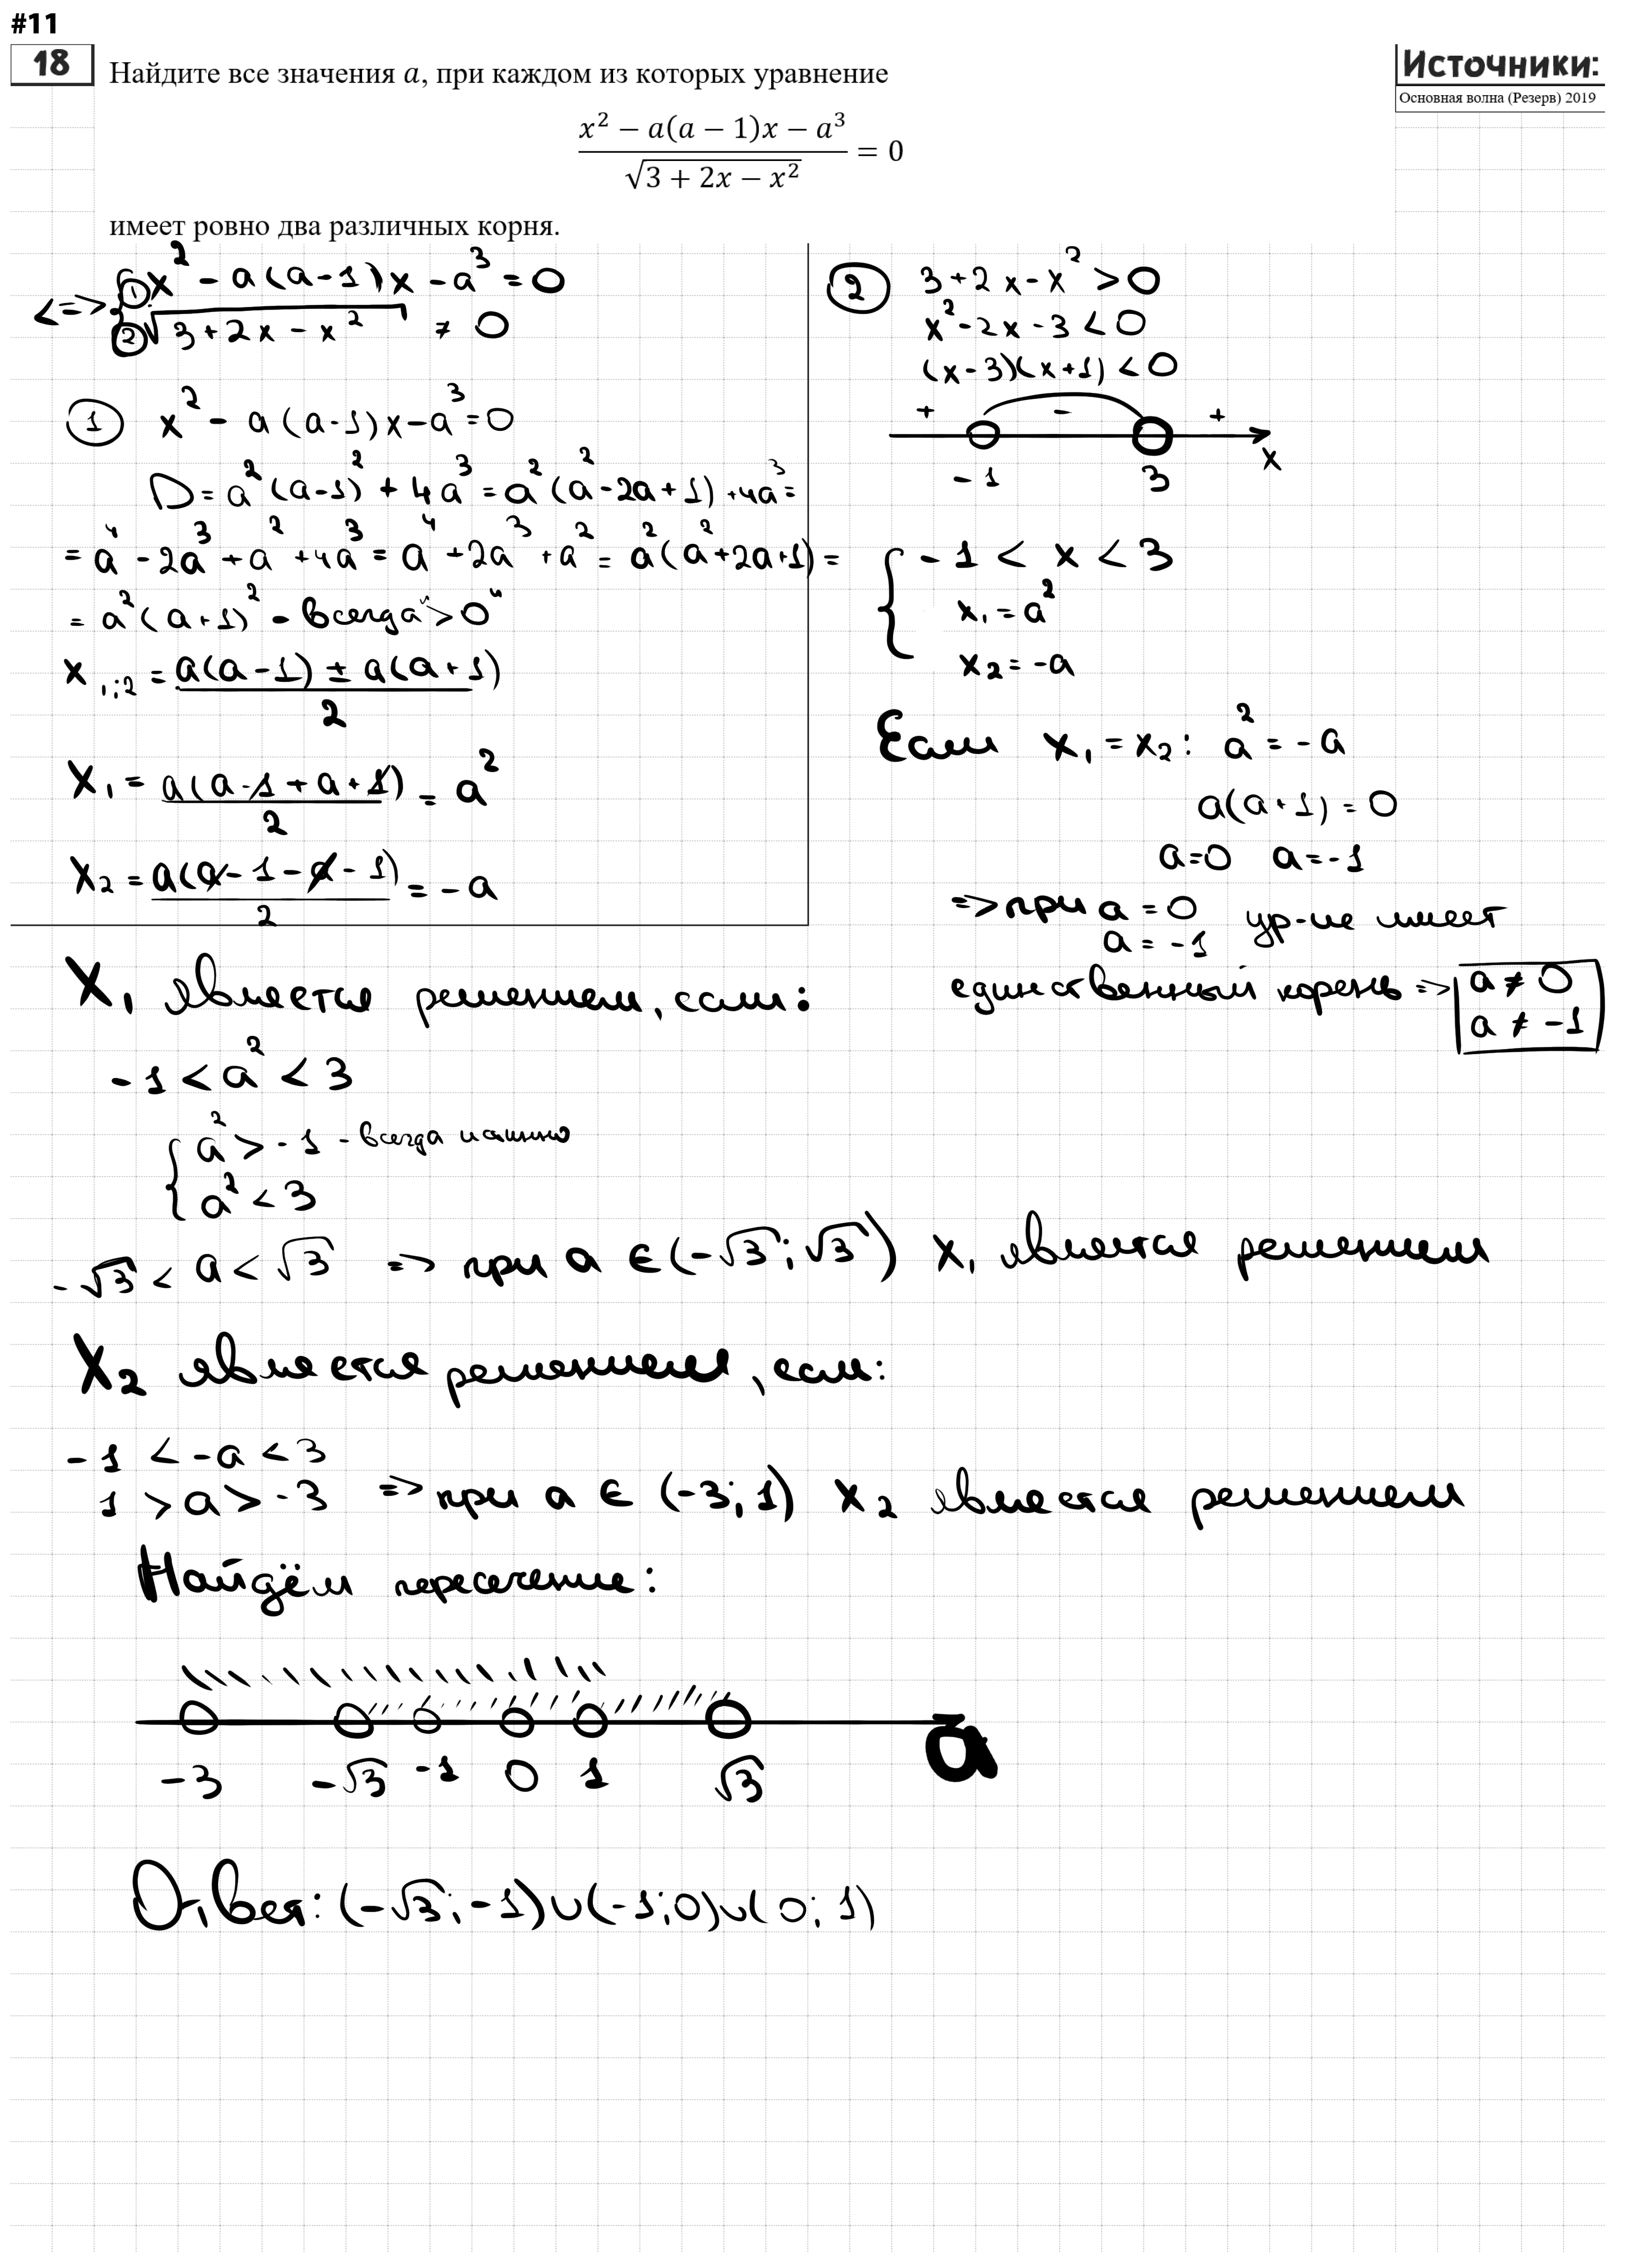 #11
18
Найдите все значения a, при каждом из которых уравнение
Источники:
Основная волна (Резерв) 2019
(x² − a(a − 1)x − a³) / √(3 + 2x − x²) = 0
имеет ровно два различных корня.
① x² - a(a-1)x - a³ = 0
<=> {
② √(3+2x-x²) ≠ 0
① x² - a(a-1)x - a³ = 0
D = a²(a-1)² + 4a³ = a²(a²-2a+1) + 4a³ =
= a⁴ - 2a³ + a² + 4a³ = a⁴ + 2a³ + a² = a²(a²+2a+1) =
= a²(a+1)² - всегда "> 0"
x₁;₂ = (a(a-1) ± a(a+1)) / 2
x₁ = a(a-1+a+1) / 2 = a²
x₂ = a(a-1-a-1) / 2 = -a
② 3+2x-x² > 0
x²-2x-3 < 0
(x-3)(x+1) < 0
+ - +
-1 3 x
{ -1 < x < 3
x₁ = a²
x₂ = -a
Если x₁ = x₂: a² = -a
a(a+1) = 0
a=0 a=-1
=> при a = 0 ур-ие имеет
a = -1
единственный корень => a ≠ 0
a ≠ -1
X₁ является решением, если:
-1 < a² < 3
{ a² > -1 - всегда истино
a² < 3
-√3 < a < √3 => при a ∈ (-√3; √3) x₁ является решением
X₂ является решением, если:
-1 < -a < 3
1 > a > -3 => при a ∈ (-3; 1) x₂ является решением
Найдём пересечение:
-3 -√3 -1 0 1 √3 a
Ответ: (-√3; -1)∪(-1; 0)∪(0; 1)